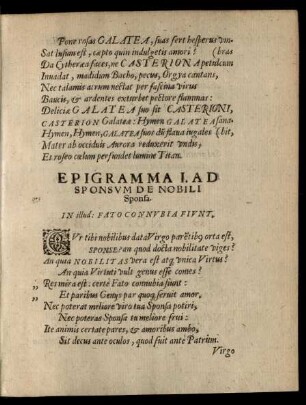 Pone rosas GALATEA, suas fert hesperus um-
Sat lusum est, cæpto quin indulgetis amori? (bras
Da Cytheræa faces, ne CASTERIONA petulcum
Inuadat, madidum Bacho, pecus, Orgya cantans,
Nec talamis acrum nectat per fascina virus
Baucis, & ardentes exturbet pectore flammas:
Deliciæ GALATEA suo sit CASTERIONI,
CASTERION Galatea: Hymen GALATEA sona-
Hymen, Hymen, GALATEA suos dū flaua iugales (bit,
Mater ab occiduis Aurora reduxerit vndis,
Et roseo cælum perfundet lumine Titan.
EPIGRAMMA I. AD
SPONSVM DE NOBILI
Sponsa.
IN illud: FATO CONNVBIA FIVNT.
CVr tibi nobilibus data Virgo parētibꝫ orta est,
SPONSE? an quod docta nobilitate viges?
An quia NOBILITAS vera est atqꝫ vnica Virtus?
An quia Virtuti vult genus esse comes?
,, Res mira est: certè Fato connubia fiunt:
,, Et paribus Genys par quoqꝫ seruit amor,
Nec poterat meliore viro tua Sponsa potiri,
Nec poteras Sponsa tu meliore frui:
Ite animis certate pares, & amoribus ambo,
Sit decus ante oculos, quod fuit ante Patrum.
Virgo